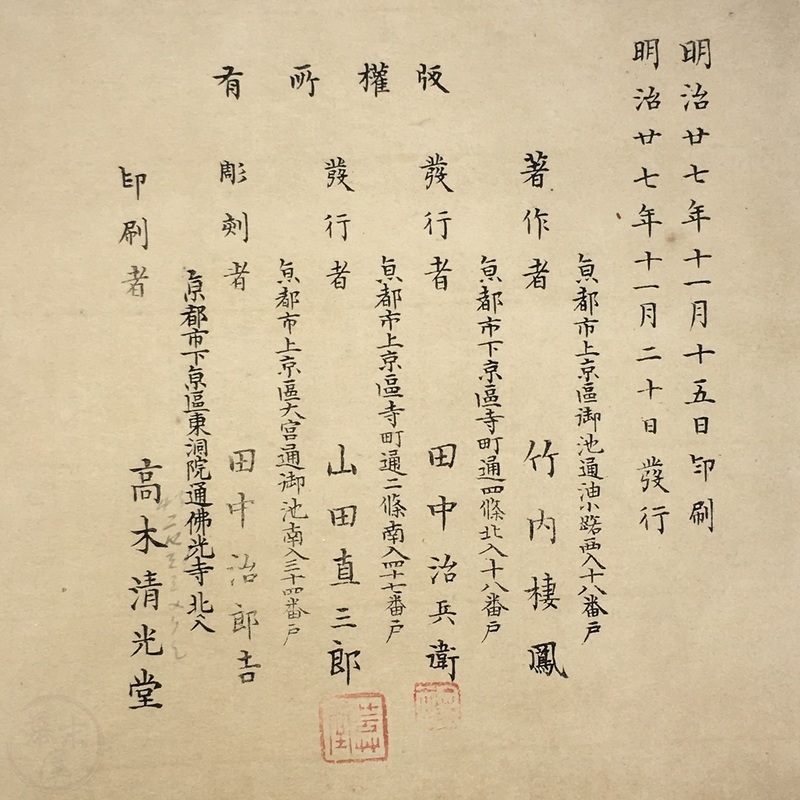 明治廿七年十一月十五日印刷
明治廿七年十一月二十日發行
版權所有
京都市上京區御池通油小路西入十八番戸
著作者　竹内棲鳳
京都市下京區寺町通四條北入十八番戸
發行者　田中治兵衛
京都市上京區寺町通二條南入四十七番戸
發行者　山田直三郎
京都市上京區大宮通御池南入三十四番戸
彫刻者　田中治郎吉
京都市下京區東洞院通佛光寺北入
印刷者　高木清光堂